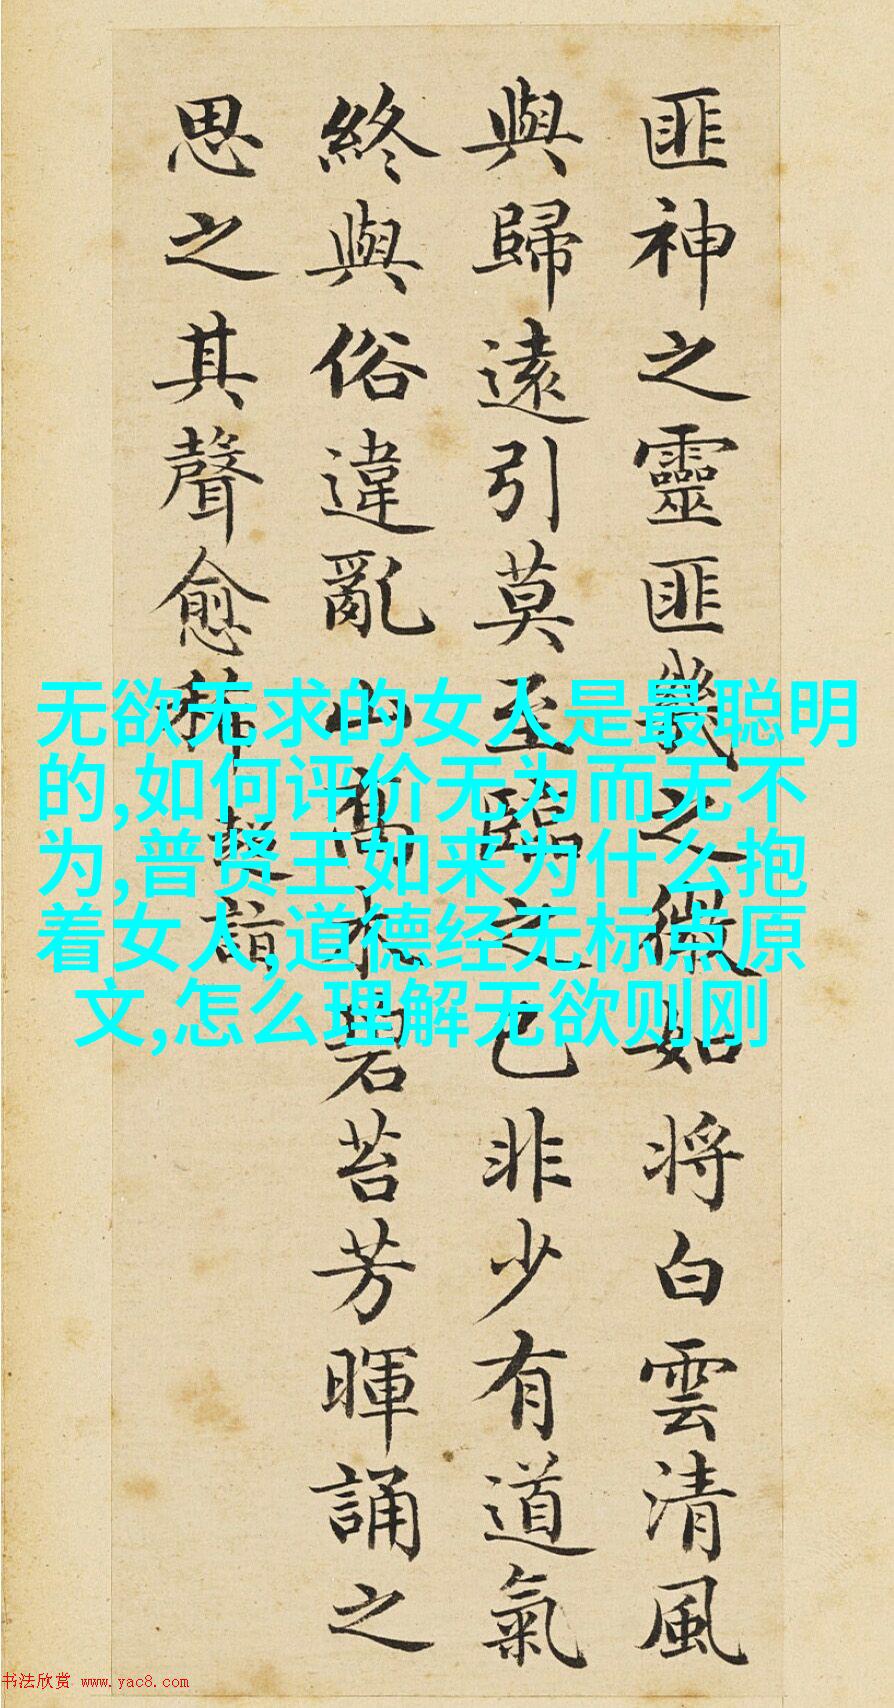 匪神之靈匪幾之微如將白雲清風
與歸遠引莫至臨之已非少有道氣
終與俗違亂山喬木碧苔芳暉誦之
思之其聲愈稀
超詣
无欲无求的女人是最聪明
的,如何评价无为而无不
为,普贤王如来为什么抱
着女人,道德经无标点原
文,怎么理解无欲则刚
书法欣赏 www.yac8.com